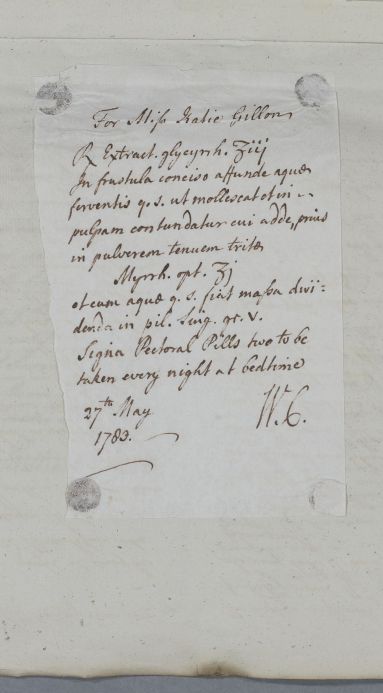 For Miſs Katie Gillon
℞ Extract. glycyrrh. ʒiij
In frustula conciso affunde aquæ
ferventis q. s. ut mollescat et in
pulpam contundatur cui adde, prius
in pulverem tenuem tritæ
Myrrh. opt. ʒj
et cum aquæ q. s. fiat maſsa divi:
denda in pil. sing. gr. v.
Signa Pectoral Pills two to be
taken every night at bedtime
27th May W. C.
1783.